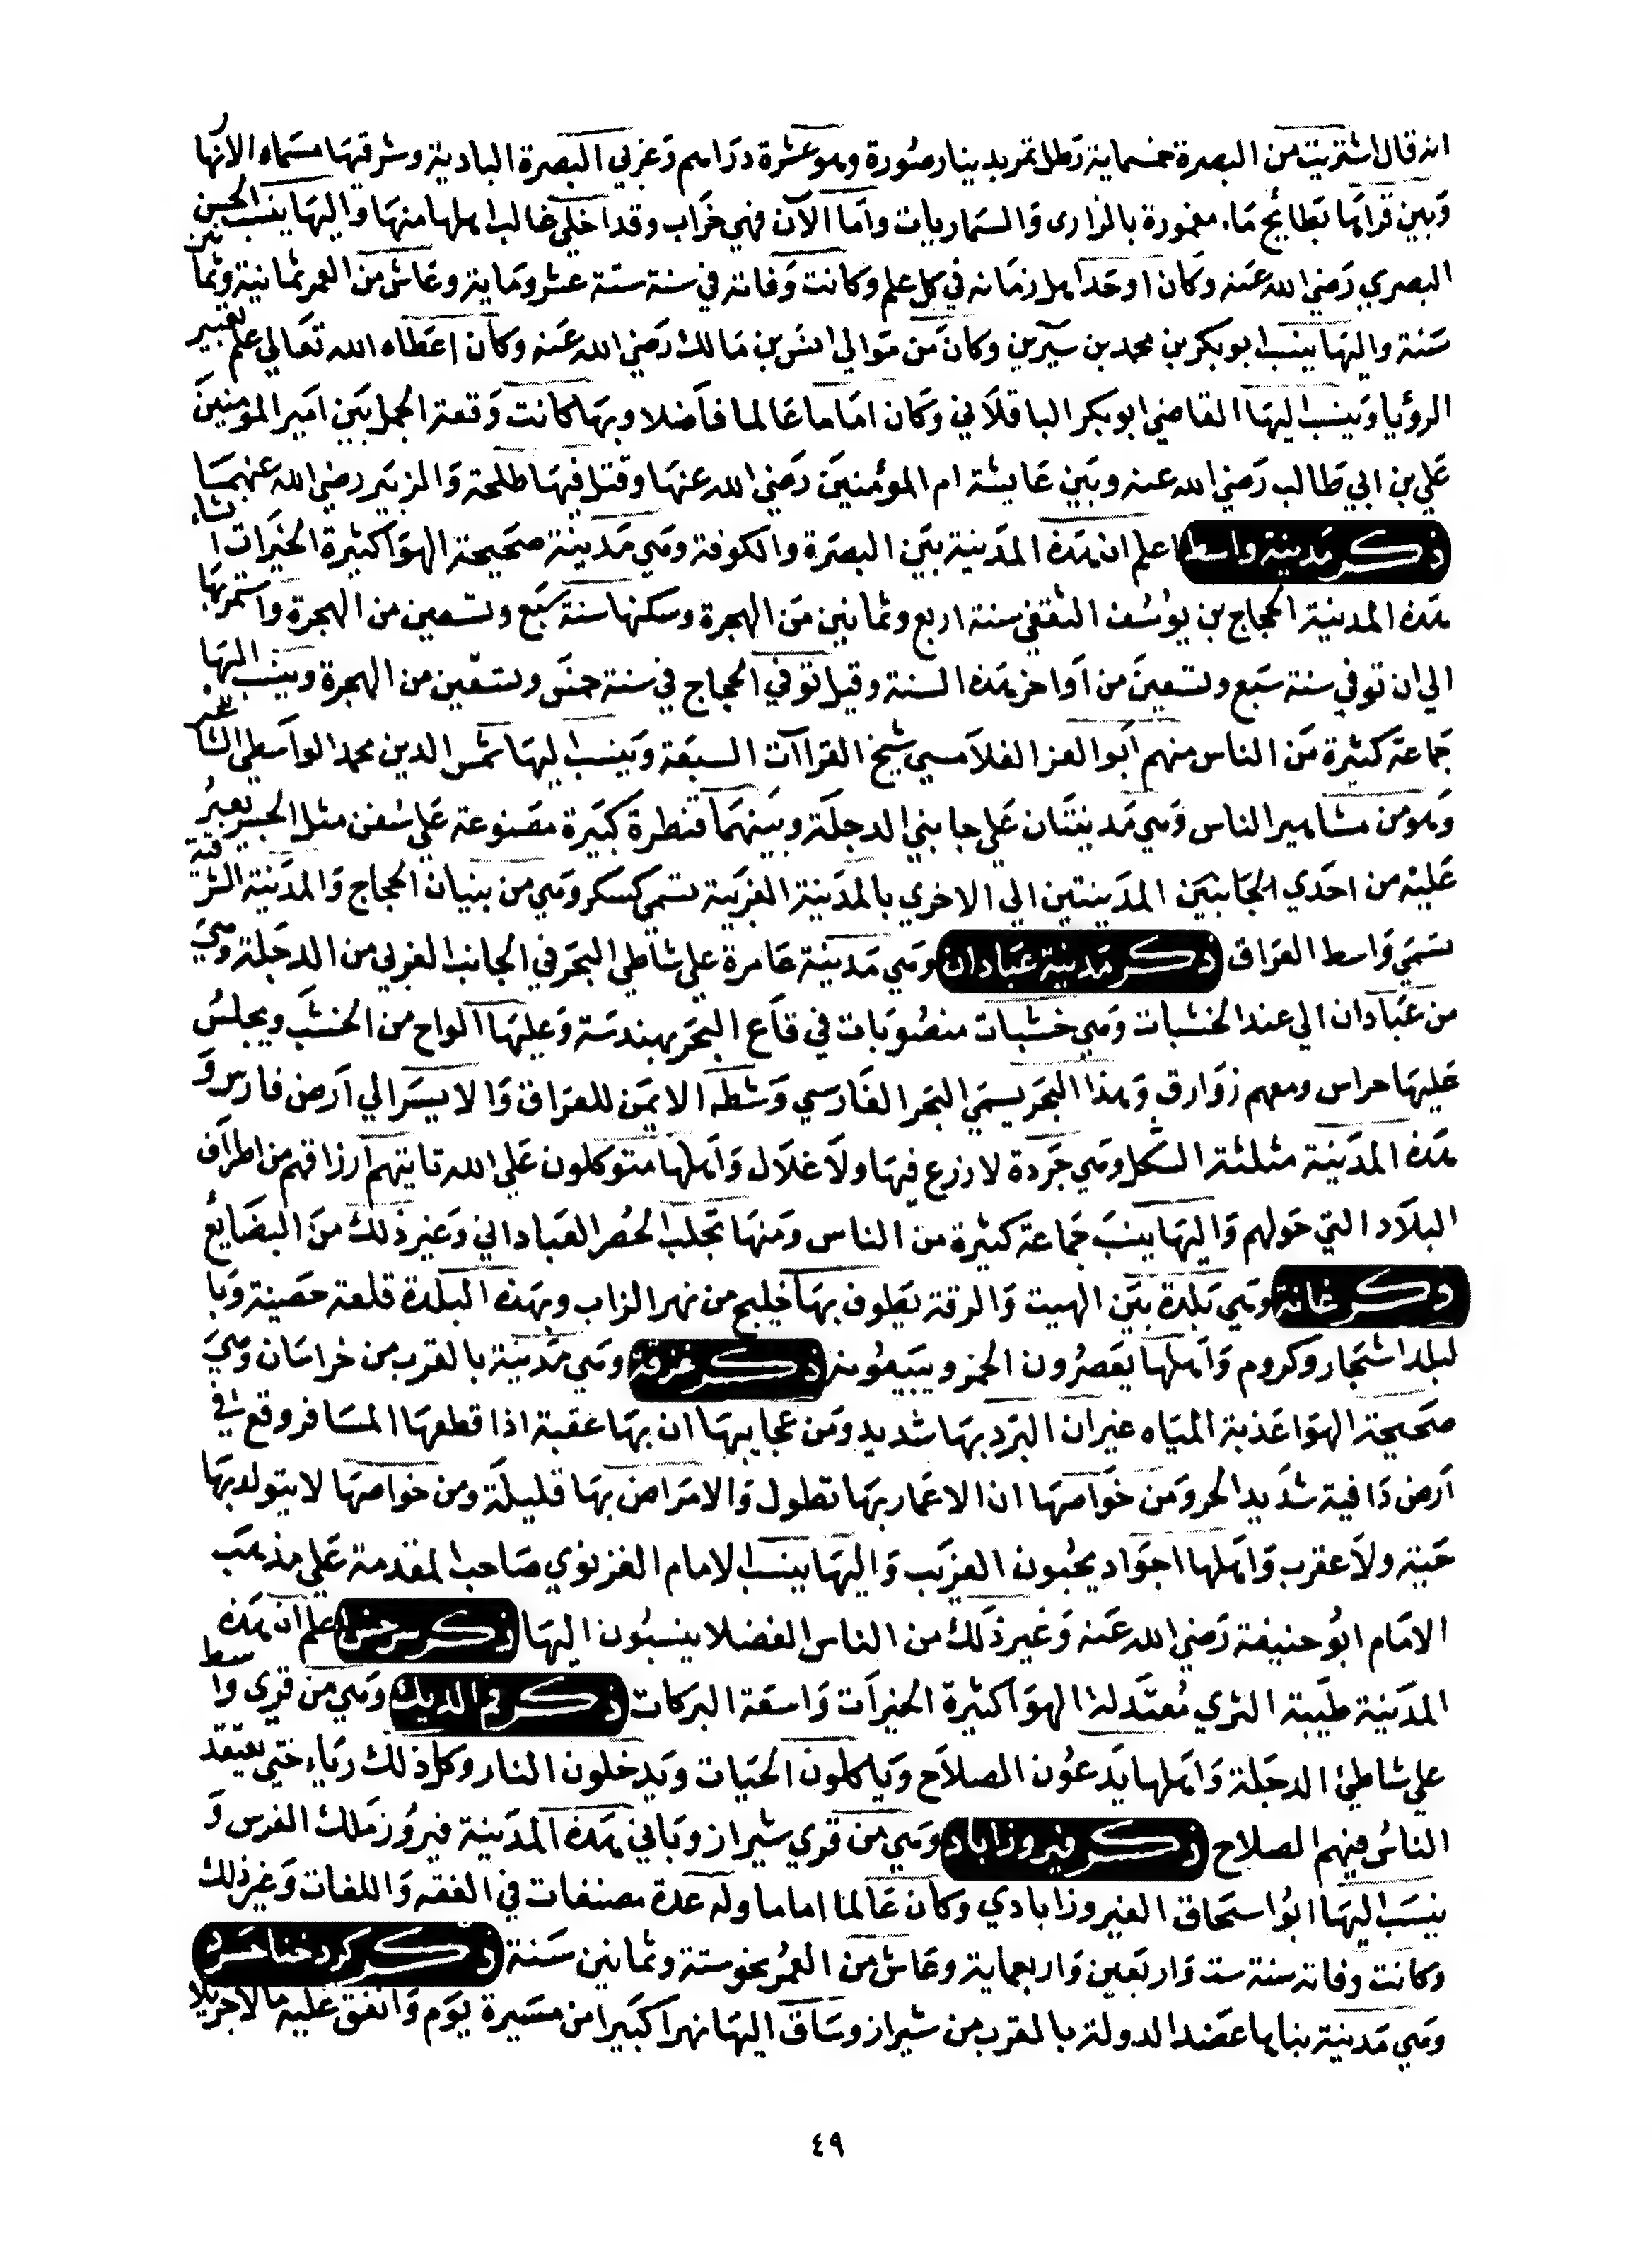 انه قال اشتريت من البصرة خمسماية رطل تمر بدينار صورة وهو عشرة دراهم وغربي البصرة البادية وشرقيها مسماه الانها
وبين قراها بطائح ماء معمورة بالزارى والسماريات واما الآن فهي خراب وقد اخلي غالب اهلها منها واليها ينسب الحسن
البصري رضي الله عنه وكان اوحد اهل زمانه في كل علم وكانت وفاته في سنة ستة عشر وماية وعاش من العمر ثمانية وثمانين
سنة واليها ينسب ابو بكر بن محمد بن سيرين وكان من موالي انس بن مالك رضي الله عنه وكان اعطاه الله تعالي علم تعبير
الرؤيا وينسب اليها القاضي ابو بكر الباقلاني وكان اماما عالما فاضلا وبها كانت وقعة الجمل بين امير المومنين
علي بن ابي طالب رضي الله عنه وبين عايشة ام المؤمنين رضي الله عنها وقتل فيها طلحة والزبير رضي الله عنهما
ذكر مدينة واسط اعلم ان هذه المدينة بين البصرة والكوفة وهي مدينة صحيحة الهوا كثيرة الخيرات انشاء
هذه المدينة الحجاج بن يوسف الثقفي سنة اربع وثمانين من الهجرة وسكنها سنة سبع وتسعين من الهجرة واستمر بها
الي ان توفي سنة سبع وتسعين من آواخر هذه السنة وقيل توفي الحجاج في سنة خمس وتسعين من الهجرة وينسب اليها
جماعة كثيرة من الناس منهم ابو العز الفلامسي شيخ القراات السبعة وينسب اليها شمس الدين محمد الواسطي الشاعر
وهو من مشاهير الناس وهي مدينتان علي جابني الدجلة وبينهما قنطرة كبيرة مصنوعة علي سفن مثل الجسر تعبر
عليه من احدي الجانبين المدينتين الي الاخري بالمدينة الغربية تسمي كسكر وهي من بنيان الحجاج والمدينة الشرقية
تسمي واسط العراق ذكر مدينة عبادان وهي مدينة عامرة علي شاطي البحر في الجانب الغربي من الدجلة وهي
من عبادان الي عند الخشبات وهي خشبات منصوبات في قاع البحر بهندسة وعليها الواح من الخشب ويجلس
عليها حراس ومعهم زوارق وهذا البحر يسمي البحر الفارسي وشطه الايمن للعراق والايسر الي ارض فارس و
هذه المدينة مثلثة الشكل وهي جردة لا زرع فيها ولا غلال واهلها متوكلون علي الله تاتيهم ارزاقهم من اطراف
البلاد التي حولهم واليها ينسب جماعة كثيرة من الناس ومنها تجلب الحصر العباداني وغير ذلك من البضايع
ذكر عانة وهي بلدة بين الهيت والرقة يطوف بها خليج من نهر الزاب وبهذه البلدة قلعة حصينة وبا
لبلد اشجار وكروم واهلها يعصرون الخمر ويبيعونه ذكر غزنة وهي مدينة بالقرب من خراسان وهي
صحيحة الهوا عذبة المياه غير ان البرد بها شديد ومن عجايبها ان بها عقبة اذا قطعها المسافر وقع في
ارض دافية شديد الحر ومن خواصها ان الاعمار بها تطول والامراض بها قليلة ومن خواصها لا يتولد بها
حية ولا عقرب واهلها اجواد يحبون الغريب واليها ينسب الامام الغزنوي صاحب المقدمة علي مذهب
الامام ابو حنيفة رضي الله عنه وغير ذلك من الناس الفضلا ينسبون اليها ذكر سرخس اعلم ان هذه
المدينة طيبة الثري معتدلة الهوا كثيرة الخيرات واسعة البركات ذكر فم الديك وهي من قري واسط
علي شاطئ الدجلة واهلها يدعون الصلاح وياكلون الحيات ويدخلون النار وكل ذلك رياء حتي يعتقد
الناس فيهم الصلاح ذكر فيروزاباد وهي من قري شيراز وباني هذه المدينة فيروز ملك الفرس و
ينسب اليها ابو اسحاق الفيروزابادي وكان عالما اماما وله عدة مصنفات في الفقه واللغات وغير ذلك
وكانت وفاته سنة ست واربعين واربعماية وعاش من العمر نحو ستة وثمانين سنة ذكر كرد خناخسرد
وهي مدينة بناها عضد الدولة بالقرب من شيراز وساق اليها نهرا كبيرا من مسيرة يوم وانفق عليه مالا جزيلا
٤٩